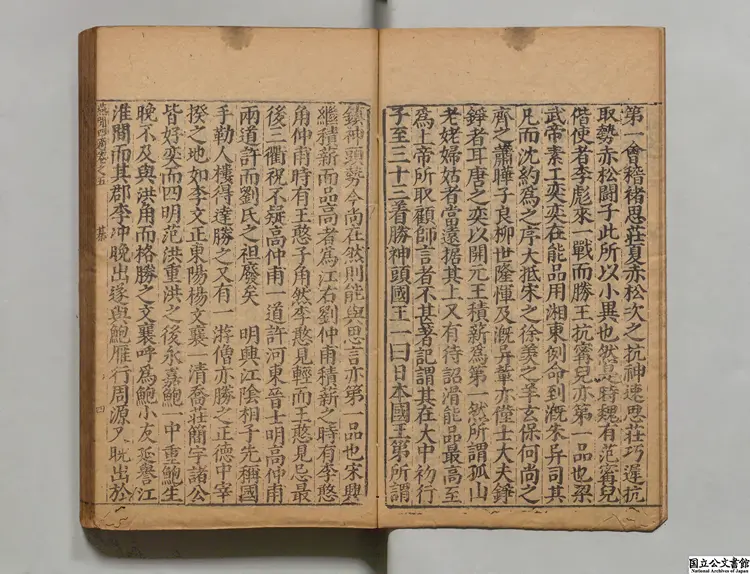 第一會稽褚思莊夏赤松次之抗神速思莊巧遲抗
取勢赤松鬪子此所以小異也然是時魏有范甯兒
偕使者李彪來一戰而勝王抗甯兒亦第一品也梁
武帝素工奕奕在能品用湘東例命到溉朱异司其
凡而沈約爲之序大抵宋之徐羨之羊玄保何尚之
齊之蕭曄子良柳世隆惲及溉异輩亦僅士大夫錚
錚者耳唐之奕以開元王積薪爲第一然所謂孤山
老姥婦姑者當遠據其上又有待詔滑能品最高至
爲上帝所取顧師言者不甚著記謂其在大中初行
子至三十三着勝神頭國王一曰日本國王第所謂
鎮神頭勢今尚在然則能與思言亦第一品也宋興
繼積薪而品高者爲江右劉仲甫積薪之時有李憨
角仲甫時有王憨子角然李憨見輕而王憨見忌最
後三衢祝不疑高仲甫一道許河東晉士明高仲甫
兩道許而劉氏之祖廢矣　明興江陰相子先稱國
手勒人樓得達勝之又有一游僧亦勝之正德中宰
揆之地如李文正東陽楊文襄一清喬莊簡宇諸公
皆好奕而四明范洪重洪之後永嘉鮑一中重鮑生
晚不及與洪角而格勝之文襄呼爲鮑小友延譽江
淮間而其郡李冲晚出遂與鮑雁行周源又晚出於
卷之五　棊　四
国立公文書館
National Archives of Japan